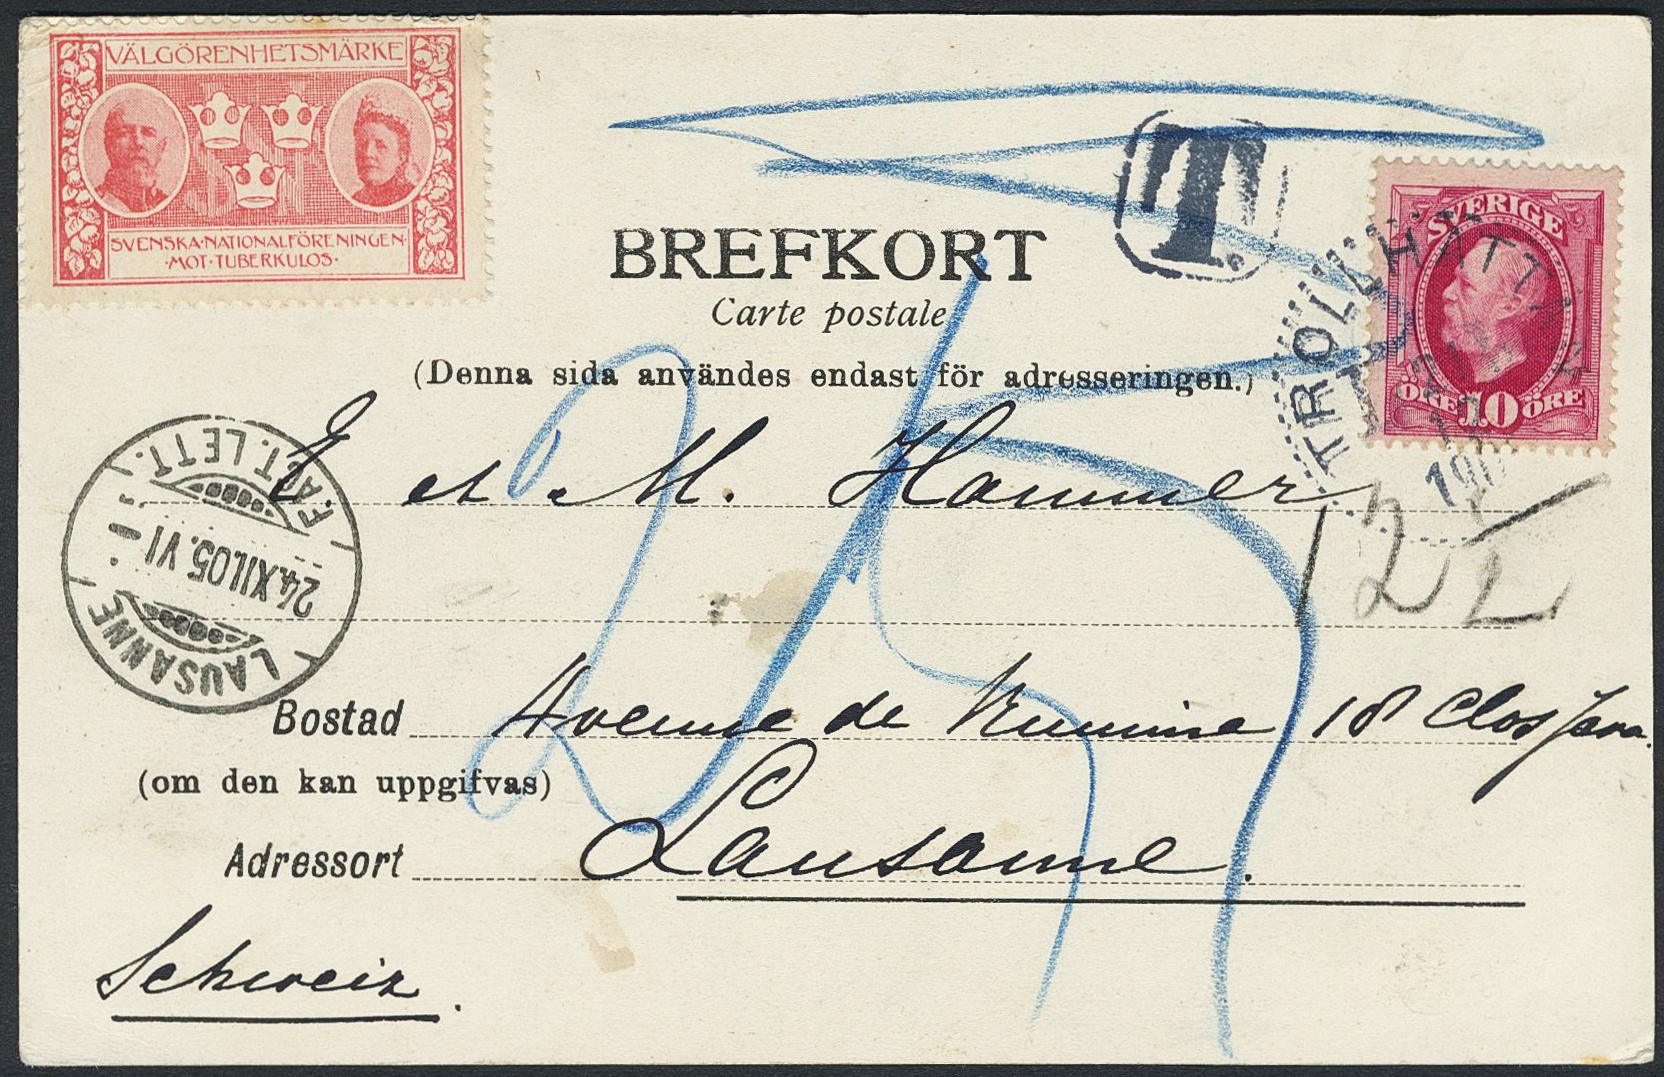 VÄLGÖRENHETSMÄRKE
SVENSKA·NATIONALFÖRENINGEN·
·MOT·TUBERKULOS·
T.
SVERIGE
ÖRE 10 ÖRE
TROLLHÄTTAN
BREFKORT
Carte postale
(Denna sida användes endast för adresseringen.)
25
12½
F. ACT. LETT.
24.XII.05. VI
LAUSANNE
E et M. Hammer
Bostad Avenue de Rumine 18 Clos Java.
(om den kan uppgifvas)
Adressort Lausanne.
Schweiz.